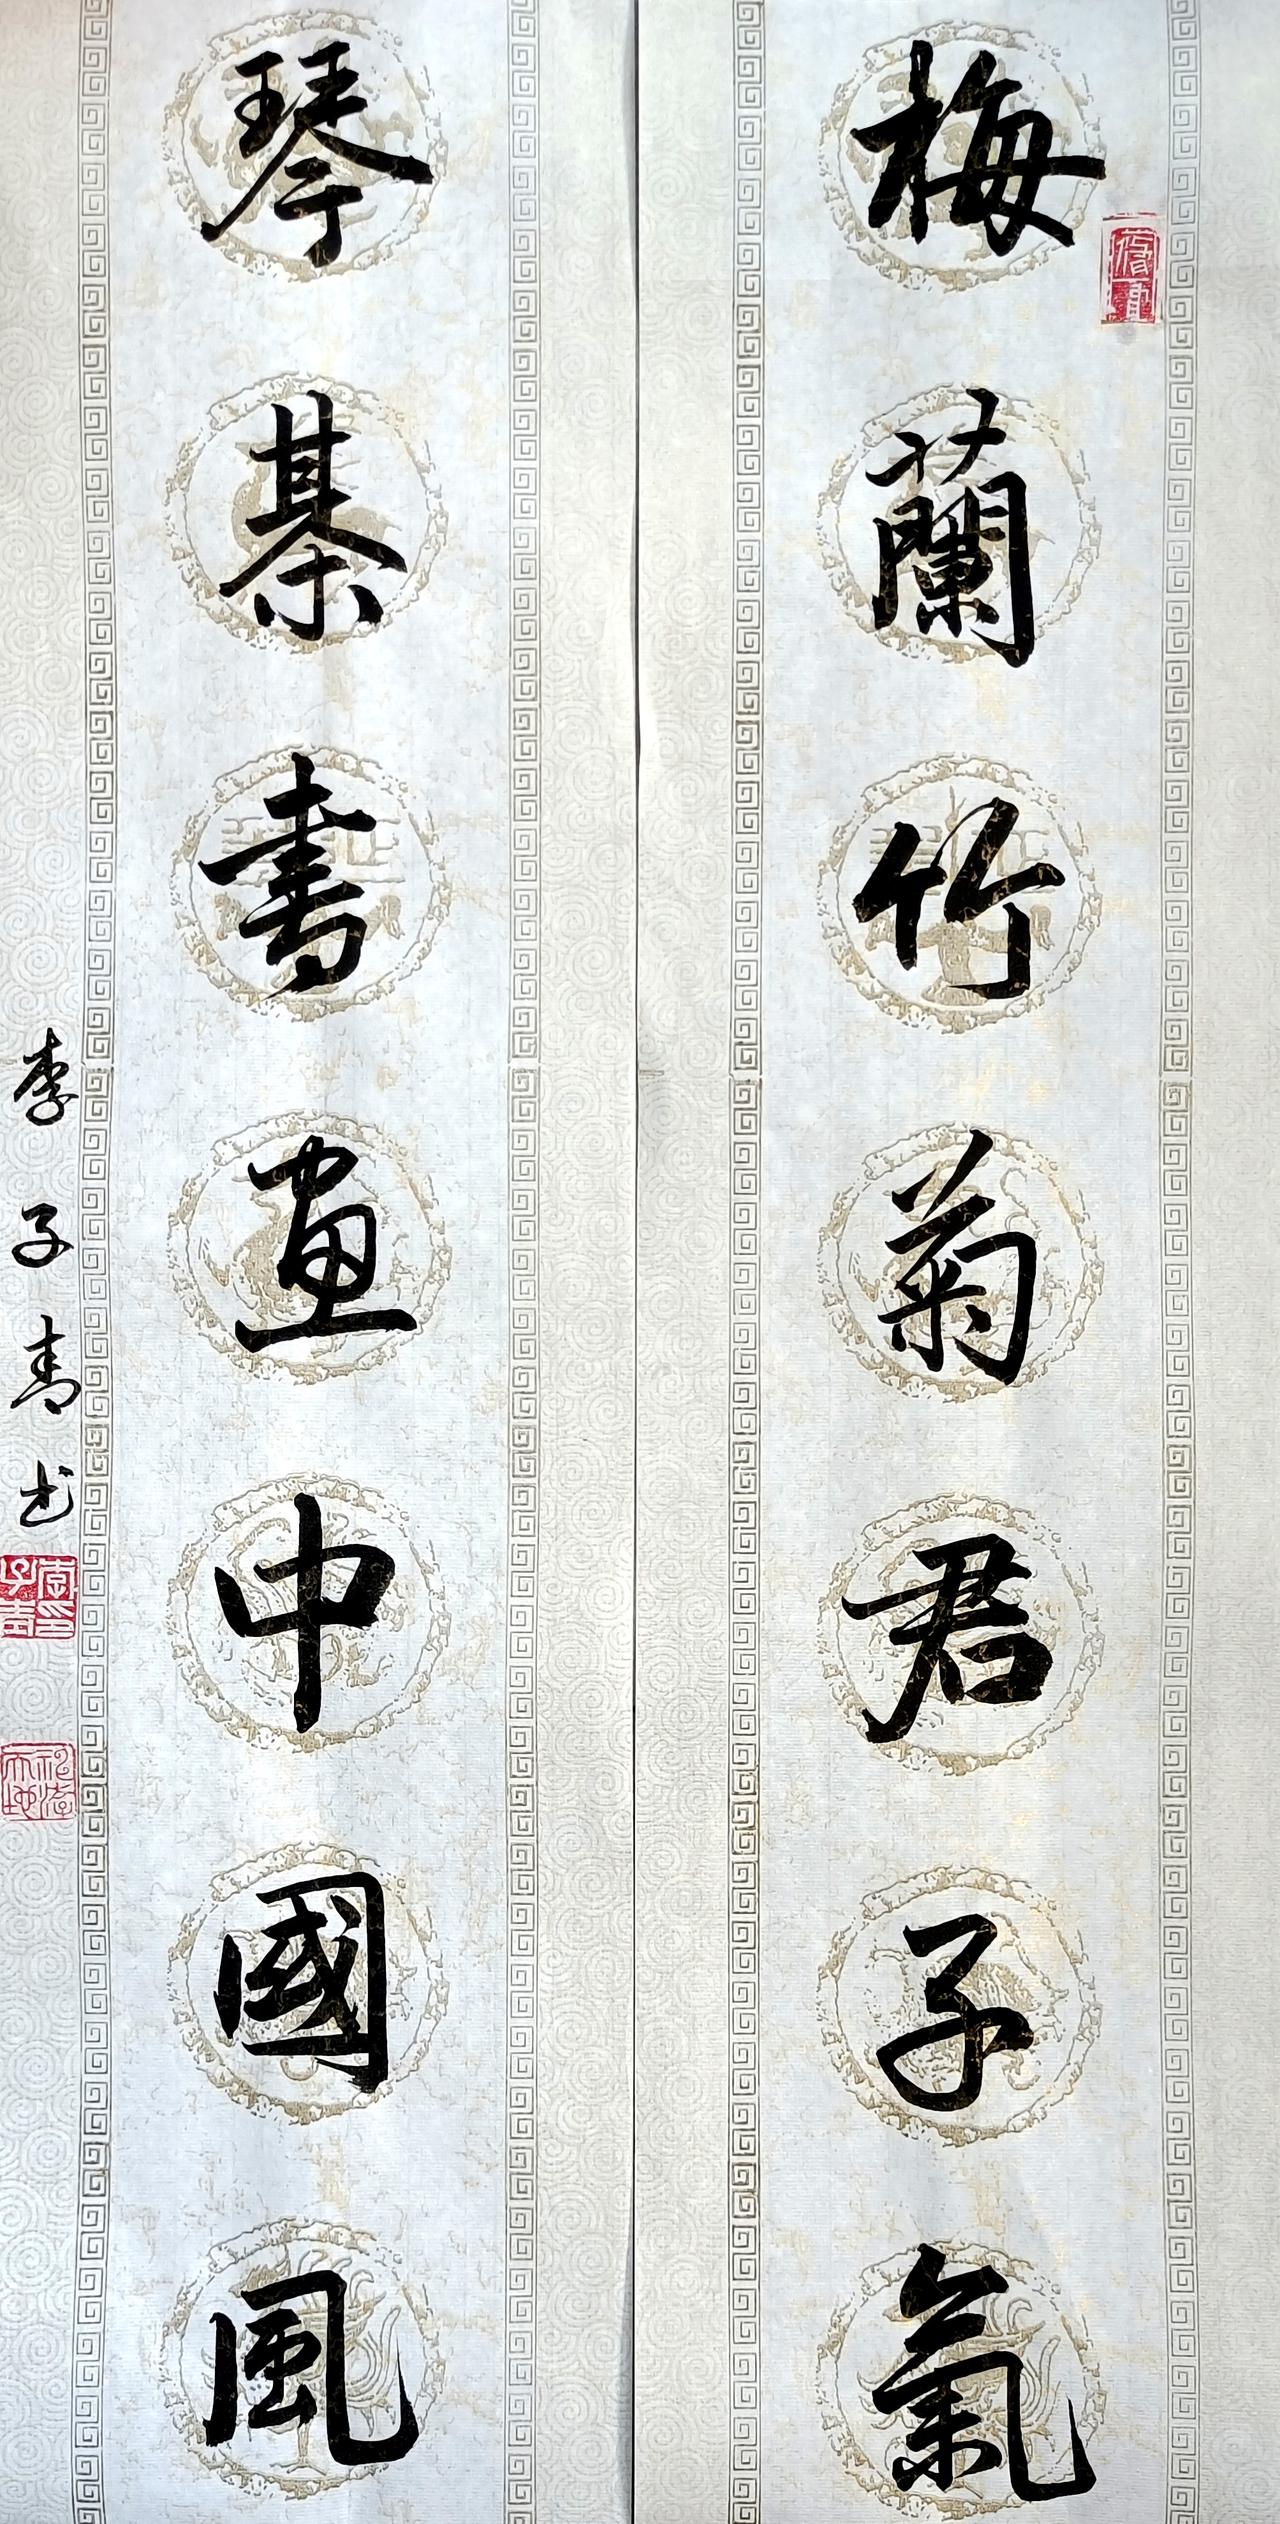 梅蘭竹菊君子氣
琴棊書畫中國風
李子青书